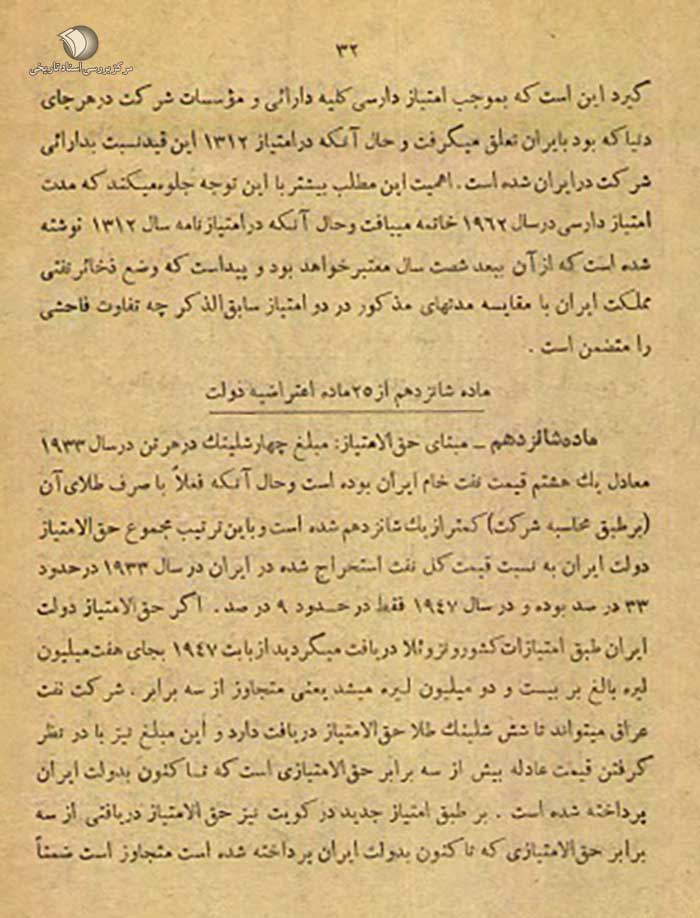 مرکز بررسی اسناد تاریخی
۳۲
گیرد این است که بموجب امتیاز دارسی کلیه دارائی و مؤسسات شرکت در هر جای
دنیا که بود بایران تعلق میگرفت و حال آنکه در امتیاز ۱۳۱۲ این قید نسبت بدارائی
شرکت در ایران شده است . اهمیت این مطلب بیشتر با این توجه جلوه میکند که مدت
امتیاز دارسی در سال ۱۹۶۲ خاتمه مییافت و حال آنکه در امتیاز نامه سال ۱۳۱۲ نوشته
شده است که از آن ببعد شصت سال معتبر خواهد بود و پیداست که وضع ذخائر نفتی
مملکت ایران با مقایسه مدتهای مذکور در دو امتیاز سابق‌الذکر چه تفاوت فاحشی
را متضمن است .
ماده شانزدهم از ۲۵ ماده اعتراضیه دولت
ماده شانزدهم ـ مبنای حق‌الامتیاز: مبلغ چهار شلینك در هر تن در سال ۱۹۳۳
معادل یك هشتم قیمت نفت خام ایران بوده است و حال آنکه فعلاً با صرف طلای آن
(بر طبق محاسبه شرکت) کمتر از یك شانزدهم شده است و باین ترتیب مجموع حق‌الامتیاز
دولت ایران به نسبت قیمت کل نفت استخراج شده در ایران در سال ۱۹۳۳ در حدود
۳۳ در صد بوده و در سال ۱۹۴۷ فقط در حدود ۹ در صد . اگر حق‌الامتیاز دولت
ایران طبق امتیازات کشور ونزوئلا دریافت میگردید از بابت ۱۹۴۷ بجای هفت میلیون
لیره بالغ بر بیست و دو میلیون لیره میشد یعنی متجاوز از سه برابر . شرکت نفت
عراق میتواند تا شش شلینك طلا حق‌الامتیاز دریافت دارد و این مبلغ نیز با در نظر
گرفتن قیمت عادله بیش از سه برابر حق‌الامتیازی است که تا کنون بدولت ایران
پرداخته شده است . بر طبق امتیاز جدید در کویت نیز حق الامتیاز دریافتی از سه
برابر حق‌الامتیازی که تا کنون بدولت ایران پرداخته شده است متجاوز است ضمناً